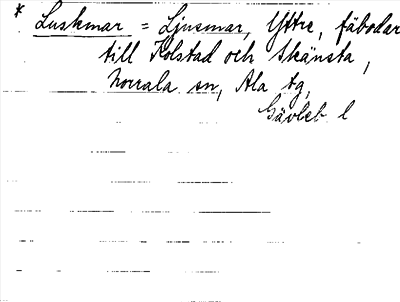 * Luskmar = Ljusmar, Yttre, fäbodar
till Kolstad och Skänsta,
Norrala sn, Ala tg,
Gävleb l